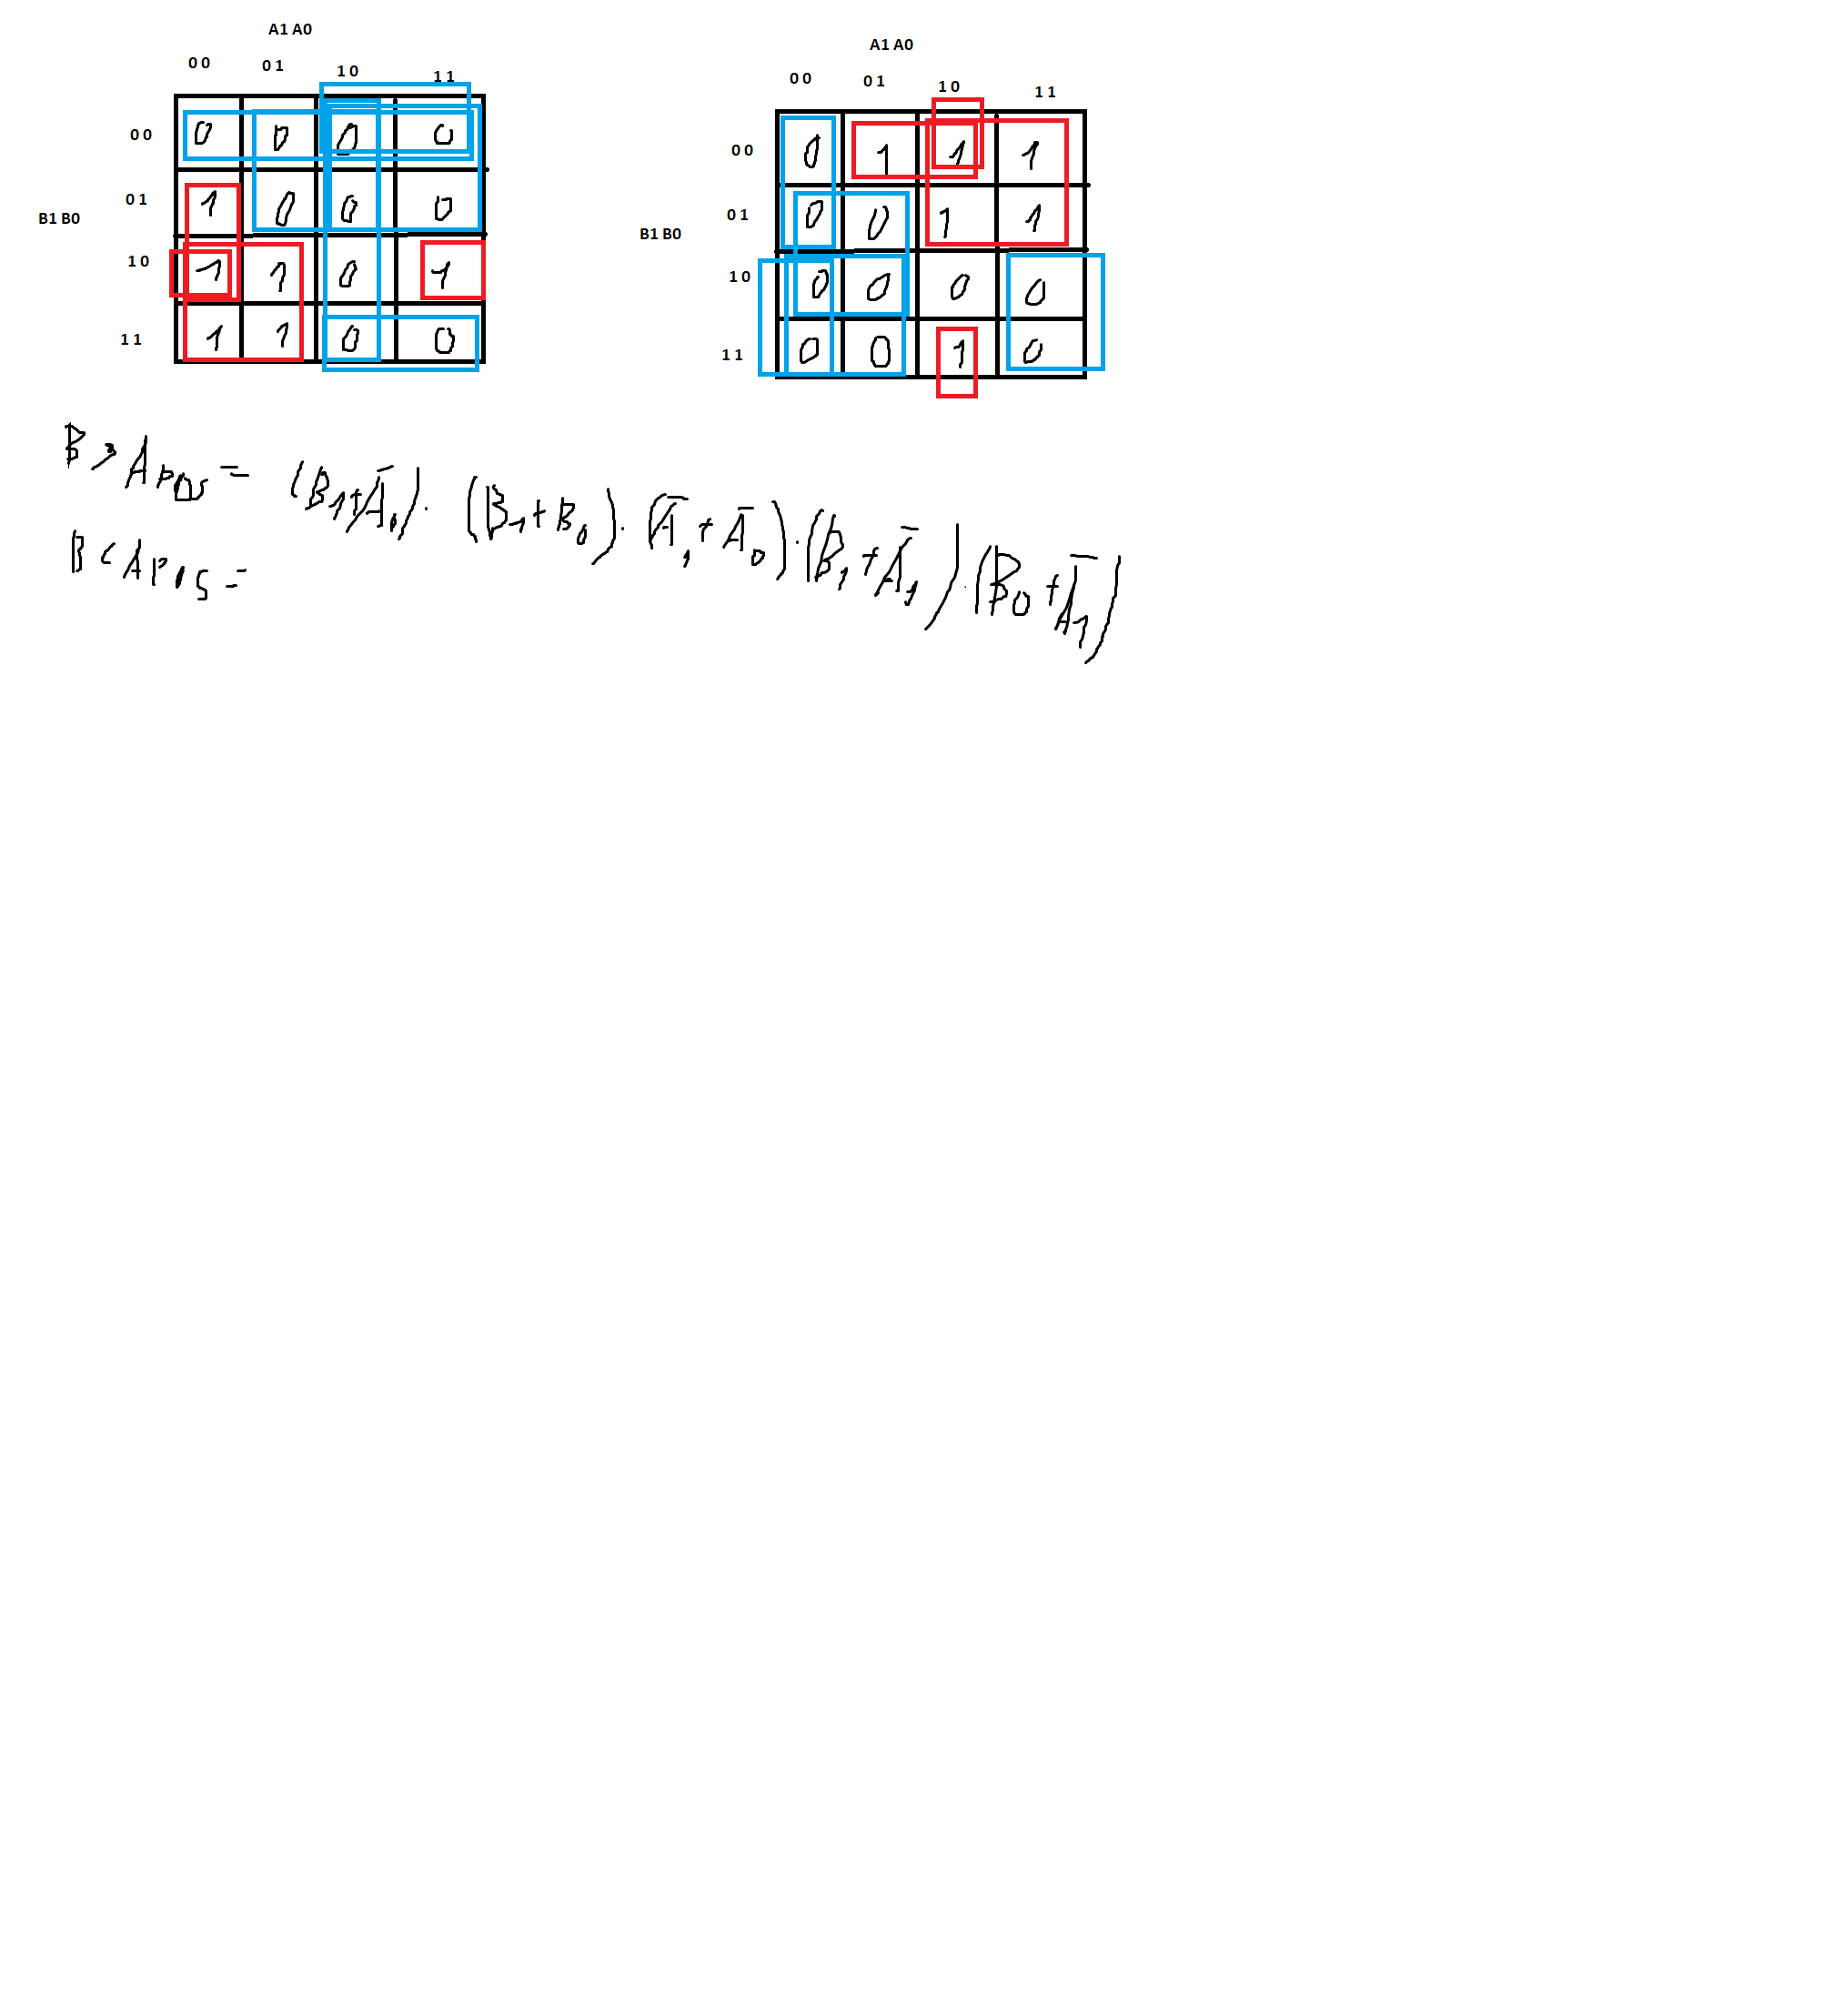 A1 A0
0 0 0 1 1 0 1 1
0 0 0 0 0 0
0 1 1 0 0 0
B1 B0
1 0 1 1 0 1
1 1 1 1 0 0
A1 A0
0 0 0 1 1 0 1 1
0 0 0 1 1 1
0 1 0 0 1 1
B1 B0
1 0 0 0 0 0
1 1 0 0 1 0
B > A POS = (B1 + A̅0) · (B1 + B0) · (A̅1 + A̅0) · (B1 + A̅1) · (B0 + A̅1)
B < A POS =